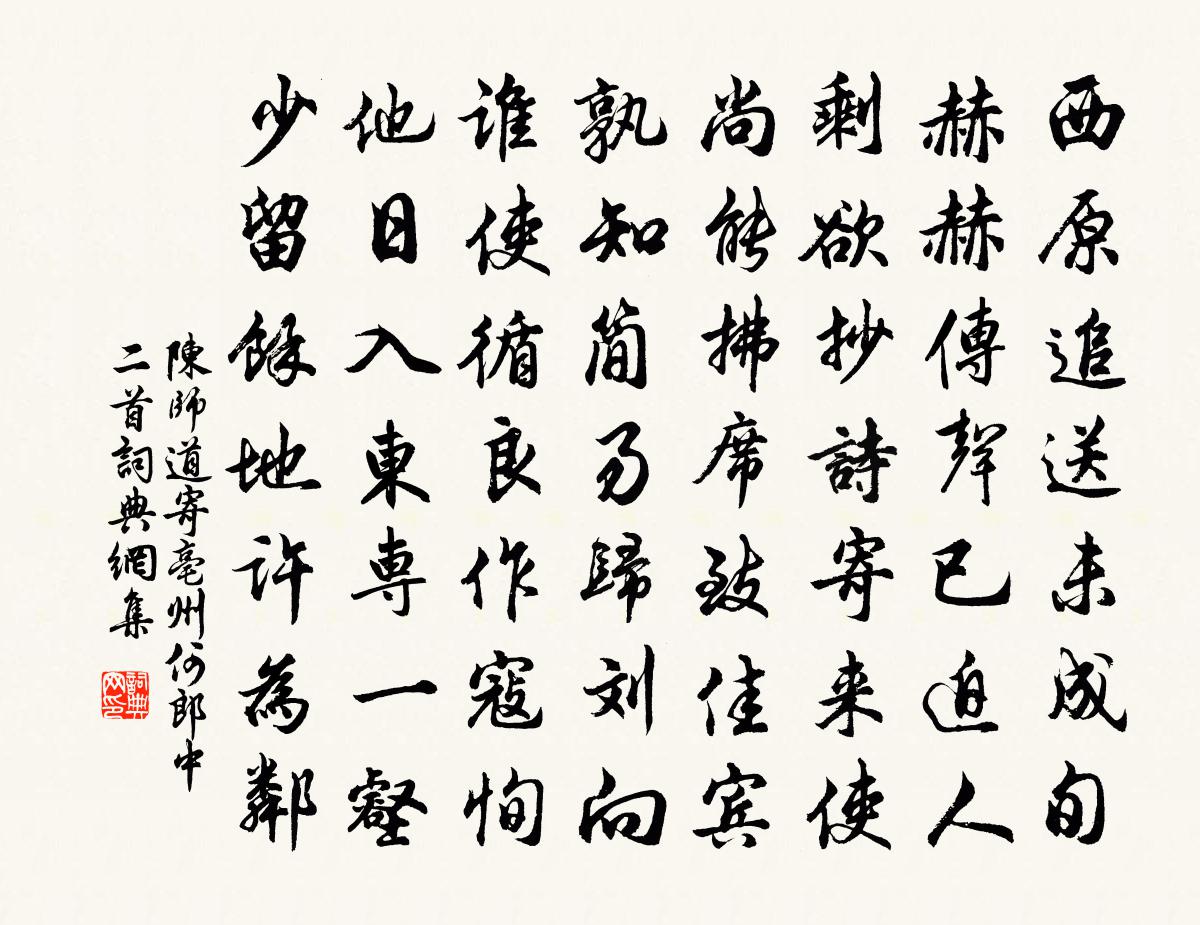 西原追送未成旬
赫赫傳聲已迫人
剩欲抄詩寄来使
尚能拂席致佳賓
孰知簡易歸刘向
誰使循良作寇恂
他日入東専一壑
少留餘地許為鄰
陳師道寄亳州何郎中
二首詞典網集
詞典
网印